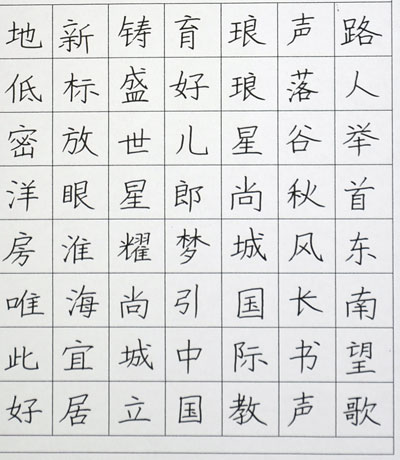 路人举首东南望歌
声落谷秋风长书声
琅琅星尚城国际教
育好儿郎梦引中国
铸盛世星耀尚城立
新标放眼淮海宜居
地低密洋房唯此好